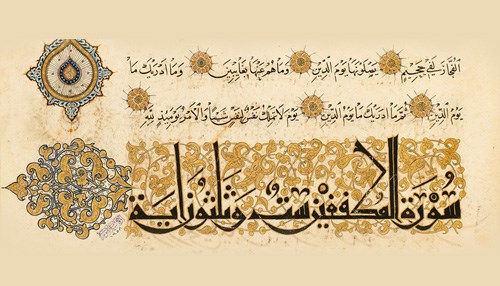 الْفُجَّارَ لَفِي جَحِيمٍ يَصْلَوْنَهَا يَوْمَ الدِّينِ وَمَا هُمْ عَنْهَا بِغَائِبِينَ وَمَا اَدْرٰيكَ مَا
يَوْمُ الدِّينِ ثُمَّ مَا اَدْرٰيكَ مَا يَوْمُ الدِّينِ يَوْمَ لَا تَمْلِكُ نَفْسٌ لِنَفْسٍ شَيْئًا وَالْاَمْرُ يَوْمَئِذٍ لِلّٰهِ
سُوْرَة المطففين ستٌ وَثلثوْن اية